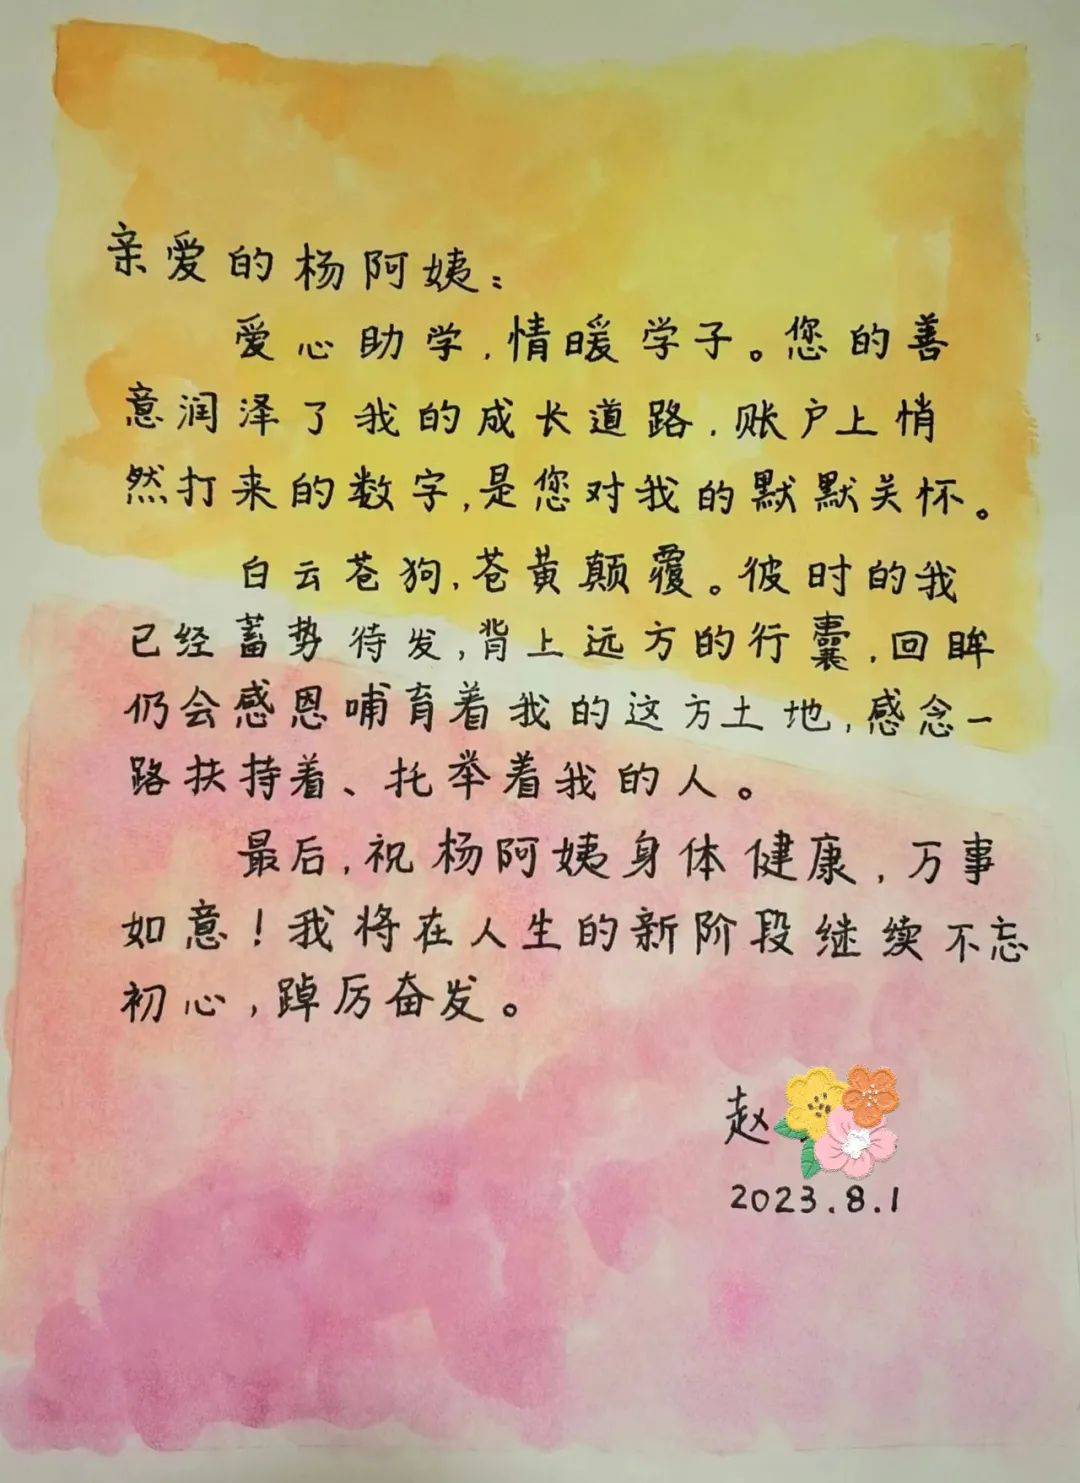 亲爱的杨阿姨：
爱心助学，情暖学子。您的善
意润泽了我的成长道路，账户上悄
然打来的数字，是您对我的默默关怀。
白云苍狗，苍黄颠覆。彼时的我
已经蓄势待发，背上远方的行囊，回眸
仍会感恩哺育着我的这方土地，感念一
路扶持着、托举着我的人。
最后，祝杨阿姨身体健康，万事
如意！我将在人生的新阶段继续不忘
初心，踔厉奋发。
赵
2023.8.1